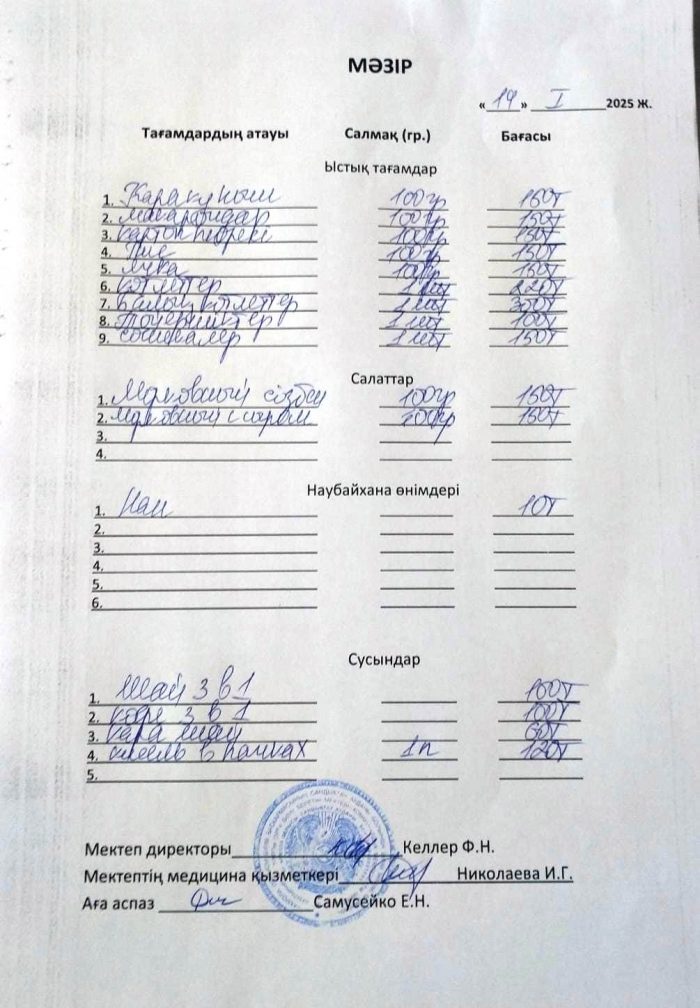 МӘЗІР
«19» I 2025 Ж.
Тағамдардың атауы Салмақ (гр.) Бағасы
Ыстық тағамдар
1. 100гр 150т
2. макарондар 100гр 150т
3. картоп пюресі 100гр 150т
4. 100гр 150т
5. 100гр 150т
6. котлеттер 1 шт 220т
7. балық котлеттер 1 шт 300т
8. 1 шт 100т
9. сосискалер 1 шт 150т
Салаттар
1. Морковный сәбіз 100гр 150т
2. морковный с сыром 100гр 150т
3.
4.
Наубайхана өнімдері
1. Нан 10т
2.
3.
4.
5.
6.
Сусындар
1. Шай 3 в 1 100т
2. кофе 3 в 1 100т
3. қара шай 60т
4. кисель в пачках 1п 120т
5.
Мектеп директоры Келлер Ф.Н.
Мектептің медицина қызметкері Николаева И.Г.
Аға аспаз Самусейко Е.Н.